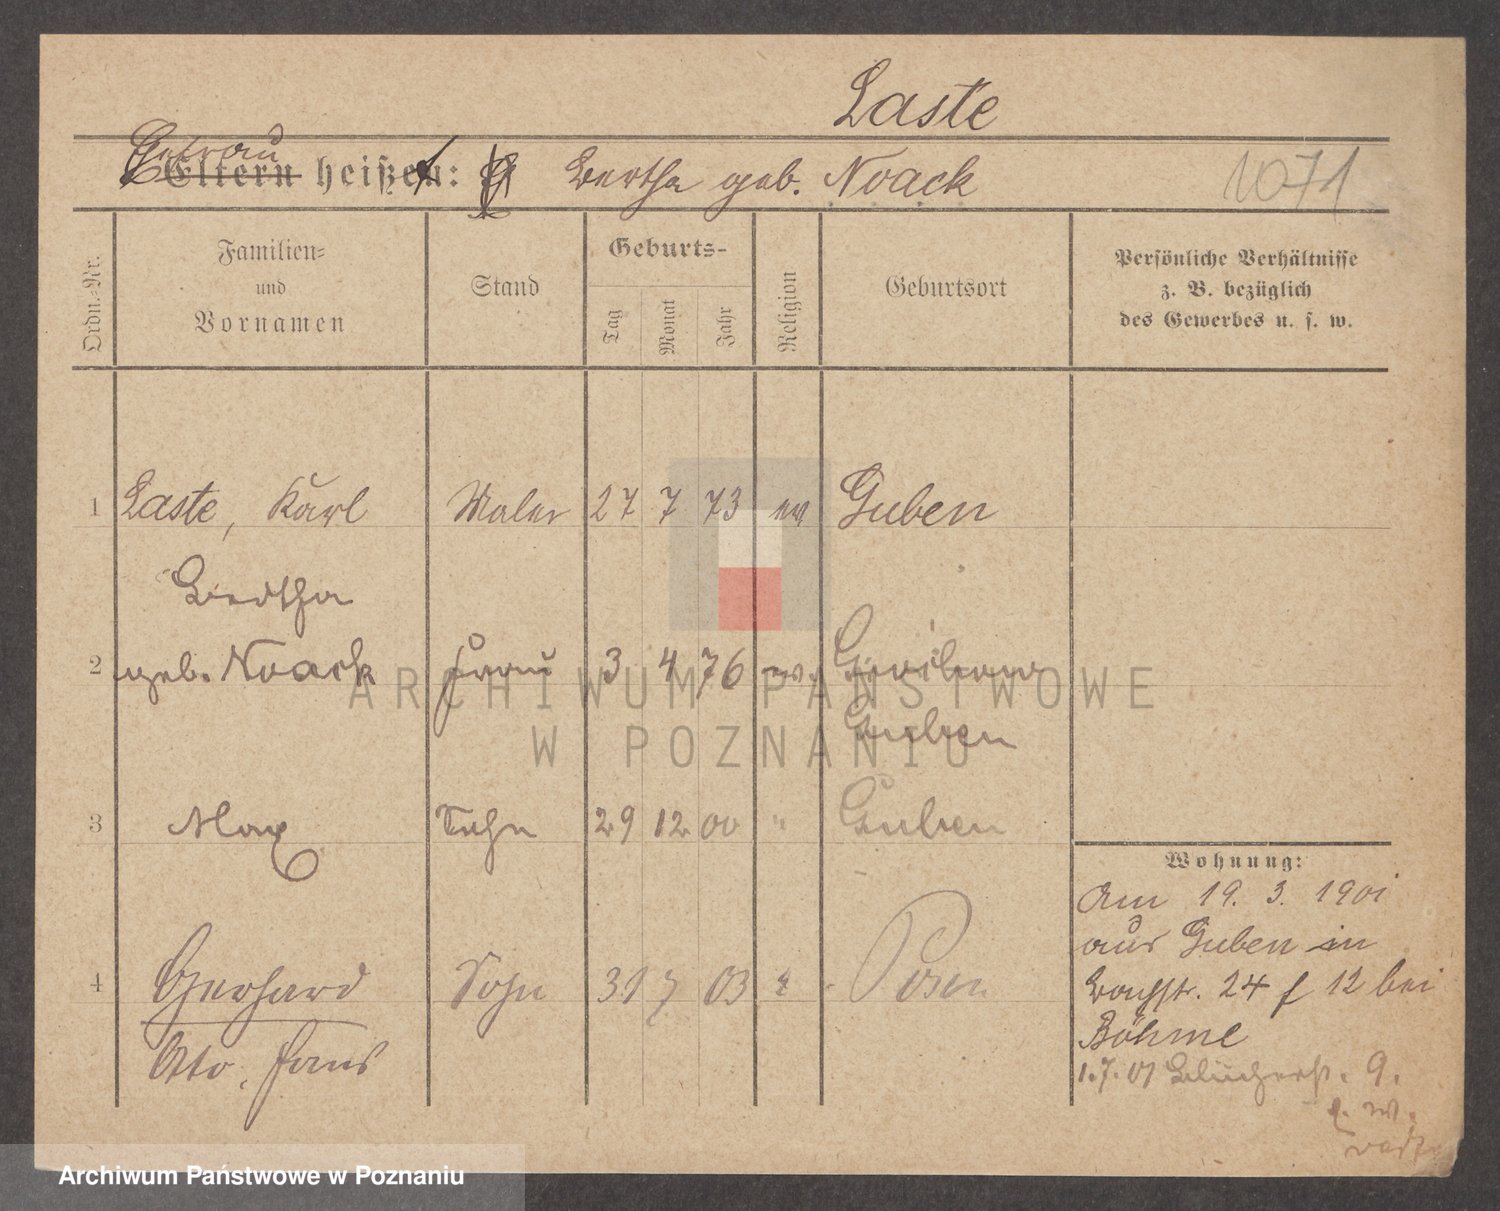 Laste
Ehefrau
Eltern heißen: Bertha geb. Noack 1071
Ordn.-Nr.
Familien=
und
Vornamen
Stand
Geburts-
Tag
Monat
Jahr
Religion
Geburtsort
Persönliche Verhältnisse
z. B. bezüglich
des Gewerbes u. s. w.
1 Laste, Karl Maler 27 7 73 ev Guben
Bertha
2 geb. Noack Frau 3 4 76 ev.
Guben
3 Max Sohn 29 12 00 " Guben
4 Gerhard Sohn 31 7 03 Posen
Otto, Hans
Wohnung:
Am 19. 3. 1901
aus Guben in
24 f 12 bei
Böhme
1.7.01 Blücherstr. 9.
ARCHIWUM PAŃSTWOWE
W POZNANIU
Archiwum Państwowe w Poznaniu